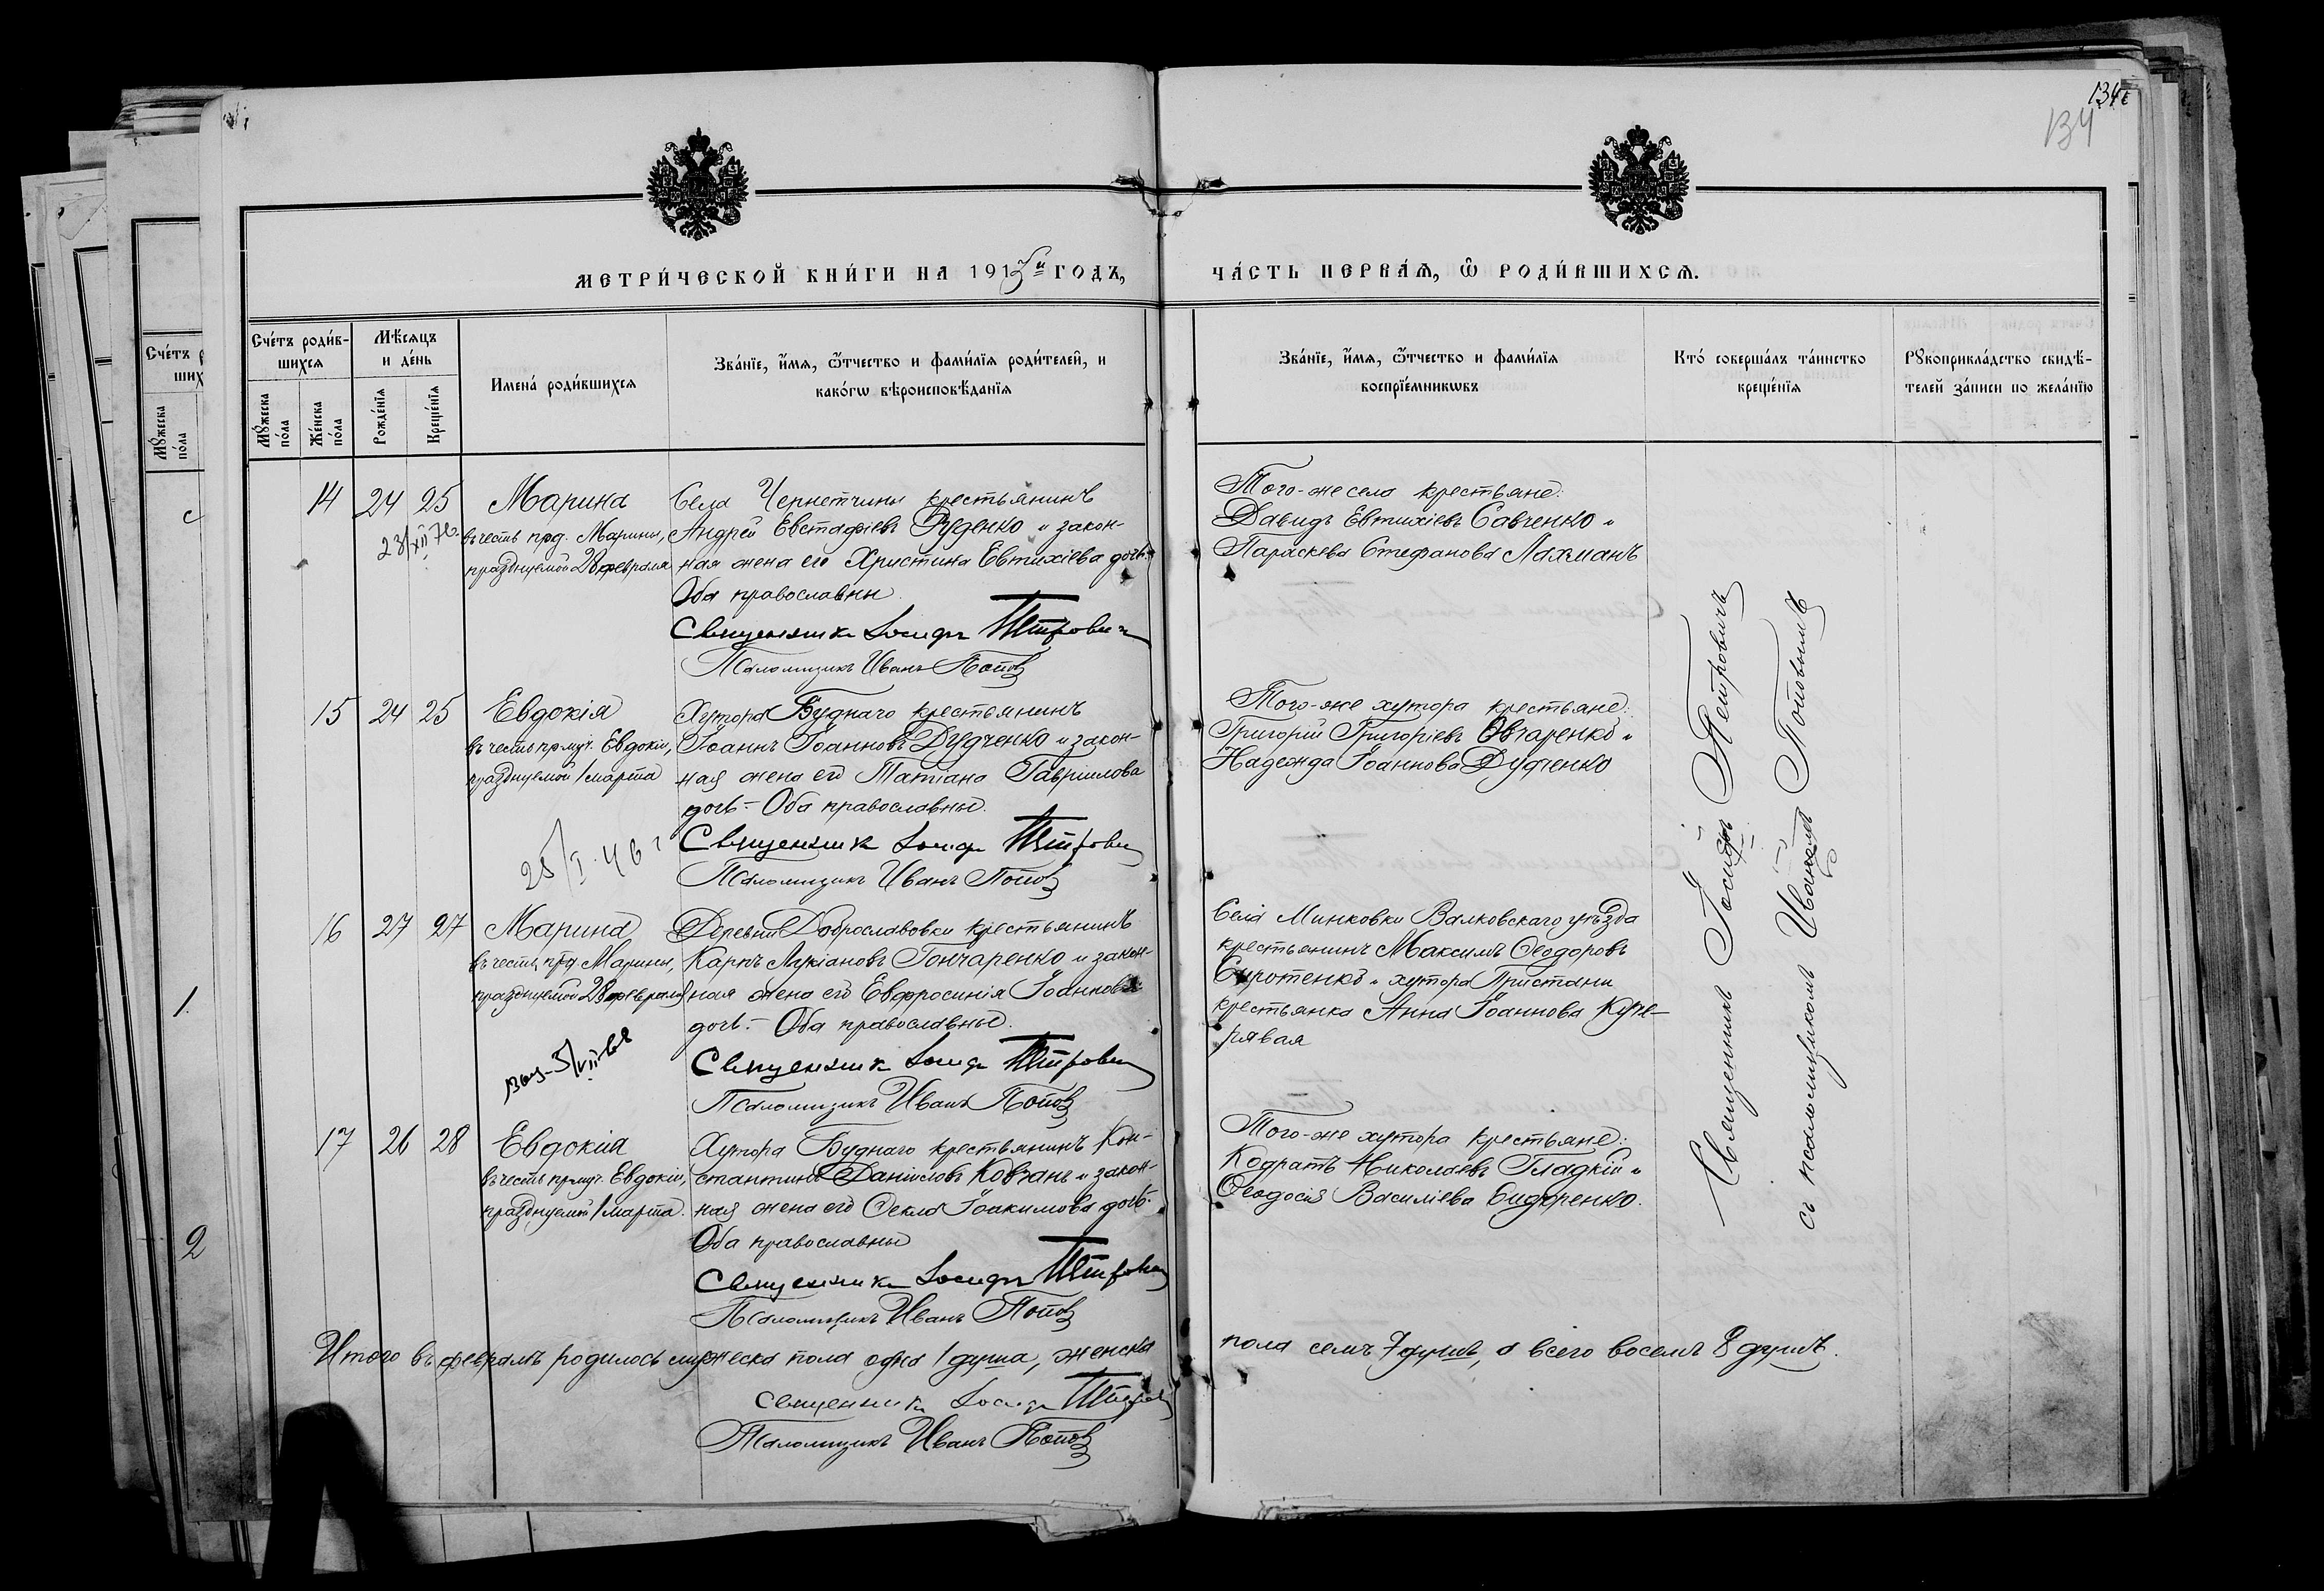 134
134
МЕТРИ́ЧЕСКОЙ КНИ́ГИ НА 1913й ГОДЪ,
ЧА́СТЬ ПЕРВА́Ѧ, Ѡ҆ РОДИ́ВШИХСѦ.
Сче́тъ роди́в-
шихсѧ
Мꙋ́жеска по́ла
Же́нска по́ла
Мѣ́сѧцъ
и де́нь
Рожде́нїѧ
Креще́нїѧ
Имена̀ роди́вшихсѧ
Зва́нїе, и҆́мѧ, ѻ҆́тчество и фами́лїѧ роди́телей, и
како́гѡ вѣроисповѣ́данїѧ
Зва́нїе, и҆́мѧ, ѻ҆́тчество и фами́лїѧ
воспрїе́мникѡвъ
Кто̀ соверша́лъ та́инство
креще́нїѧ
Рꙋкоприкла́дство свидѣ́-
телей за́писи по жела́нїю
14 24 25 Марина
въ честь прд. Марины,
празднуемой 28 февраля
23/XII 76
Села Чернетчины крестьянинъ
Андрей Евстафіевъ Руденко и закон-
ная жена его Христина Евтихіева дочь.
Оба православны.
Священникъ Іосифъ Петровичъ
Псаломщикъ Иванъ Попов
Того-же села крестьяне:
Давидъ Евтихіевъ Савченко и
Параскева Стефанова Лахманъ
15 24 25 Евдокія
въ честь прмуч. Евдокіи,
празднуемой 1 марта
25/I-46 г
Хутора Буднаго крестьянинъ
Іоаннъ Іоанновъ Дудченко и закон-
ная жена его Татіана Гавріилова
дочь.- Оба православные.
Священникъ Іосифъ Петрович
Псаломщикъ Иванъ Попов
Того-же хутора крестьяне:
Григорій Григоріевъ Овчаренко и
Надежда Іоаннова Дудченко
16 27 27 Марина
въ честь прд. Марины,
празднуемой 28 февраля
Деревни Доброславовки крестьянинъ
Карпъ Лукіановъ Гончаренко и закон-
ная жена его Евфросинія Іоаннова
дочь.- Оба православные.
Священникъ Іосифъ Петрович
Псаломщикъ Иванъ Попов
Села Минковки Валковскаго уѣзда
крестьянинъ Максимъ Ѳеодоровъ
Сиротенко и хутора Пристани
крестьянка Анна Іоаннова Куче-
рявая
17 26 28 Евдокія
въ честь прмуч. Евдокіи,
празднуемой 1 марта.
Хутора Буднаго крестьянинъ Кон-
стантинъ Даніиловъ Ковганъ и закон-
ная жена его Ѳекла Іоакимова дочь.
Оба православные
Священникъ Іосифъ Петрович
Псаломщикъ Иванъ Попов
Того-же хутора крестьяне:
Кодратъ Николаевъ Гладкій и
Ѳеодосія Василіева Сидоренко.
Священникъ Іосифъ Петровичъ
съ псаломщикомъ Иваномъ Поповымъ
Итого въ февралѣ родилось мужеска пола одна 1 душа, женска
пола семь 7 душъ, а всего восемь 8 душъ.
Священникъ Іосифъ Петрович
Псаломщикъ Иванъ Попов
Сче́тъ
ших
Мꙋ́жеска по́ла
1
2